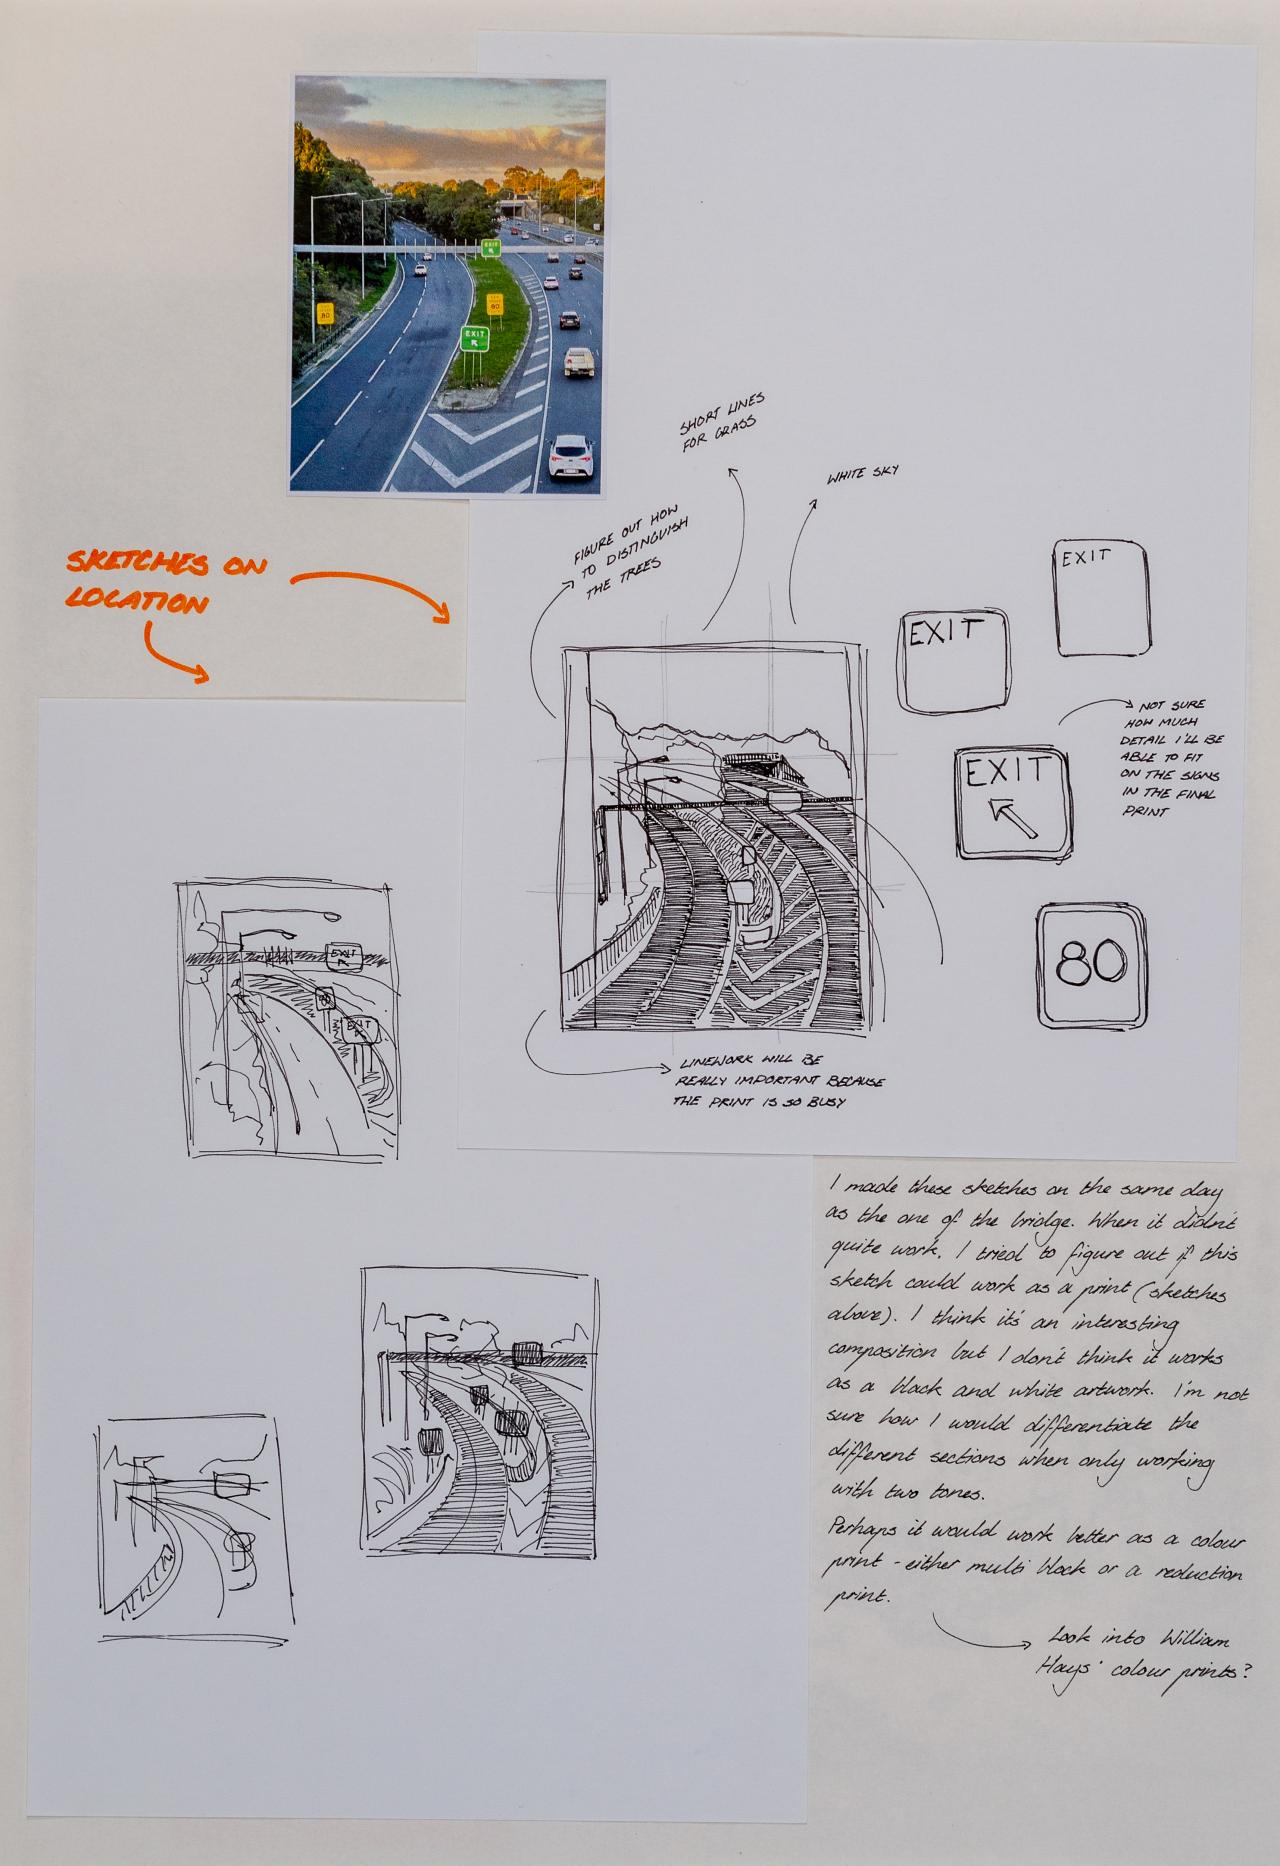 EXIT
80
80
EXIT
SHORT LINES
FOR GRASS
WHITE SKY
FIGURE OUT HOW
TO DISTINGUISH
THE TREES
SKETCHES ON
LOCATION
EXIT
EXIT
NOT SURE
HOW MUCH
DETAIL I'LL BE
ABLE TO FIT
ON THE SIGNS
IN THE FINAL
PRINT
EXIT
80
LINEWORK WILL BE
REALLY IMPORTANT BECAUSE
THE PRINT IS SO BUSY
EXIT
80
EXIT
I made these sketches on the same day
as the one of the bridge. When it didn't
quite work, I tried to figure out if this
sketch could work as a print (sketches
above). I think it's an interesting
composition but I don't think it works
as a black and white artwork. I'm not
sure how I would differentiate the
different sections when only working
with two tones.
Perhaps it would work better as a colour
print - either multi block or a reduction
print.
Look into William
Hays' colour prints?